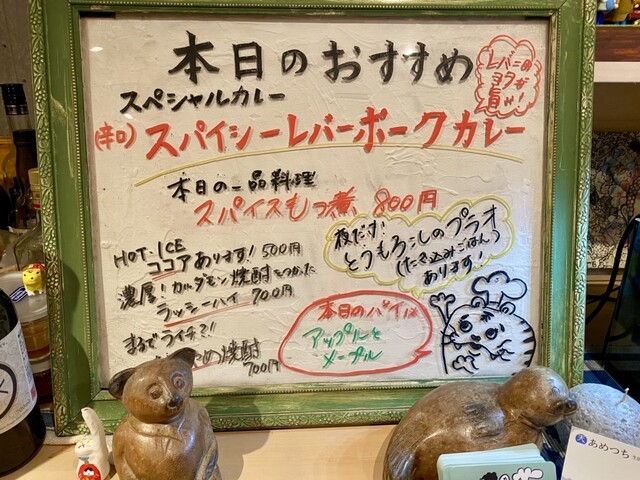 本日のおすすめ
レバニの
ヨフが
旨み!
スペシャルカレー
(辛口) スパイシーレバーポークカレー
本日の一品料理
スパイスもつ煮 800円
HOT・ICE
ココアあります! 500円
濃厚! カルダモン焼酎をつかた
ラッシーハイ 700円
まるでライチ?!
め焼酎
700円
夜だけ!
とうもろこしのプラオ
(たき込みごはん)
あります!
本日のパイは
アップルと
メープル
あめつち